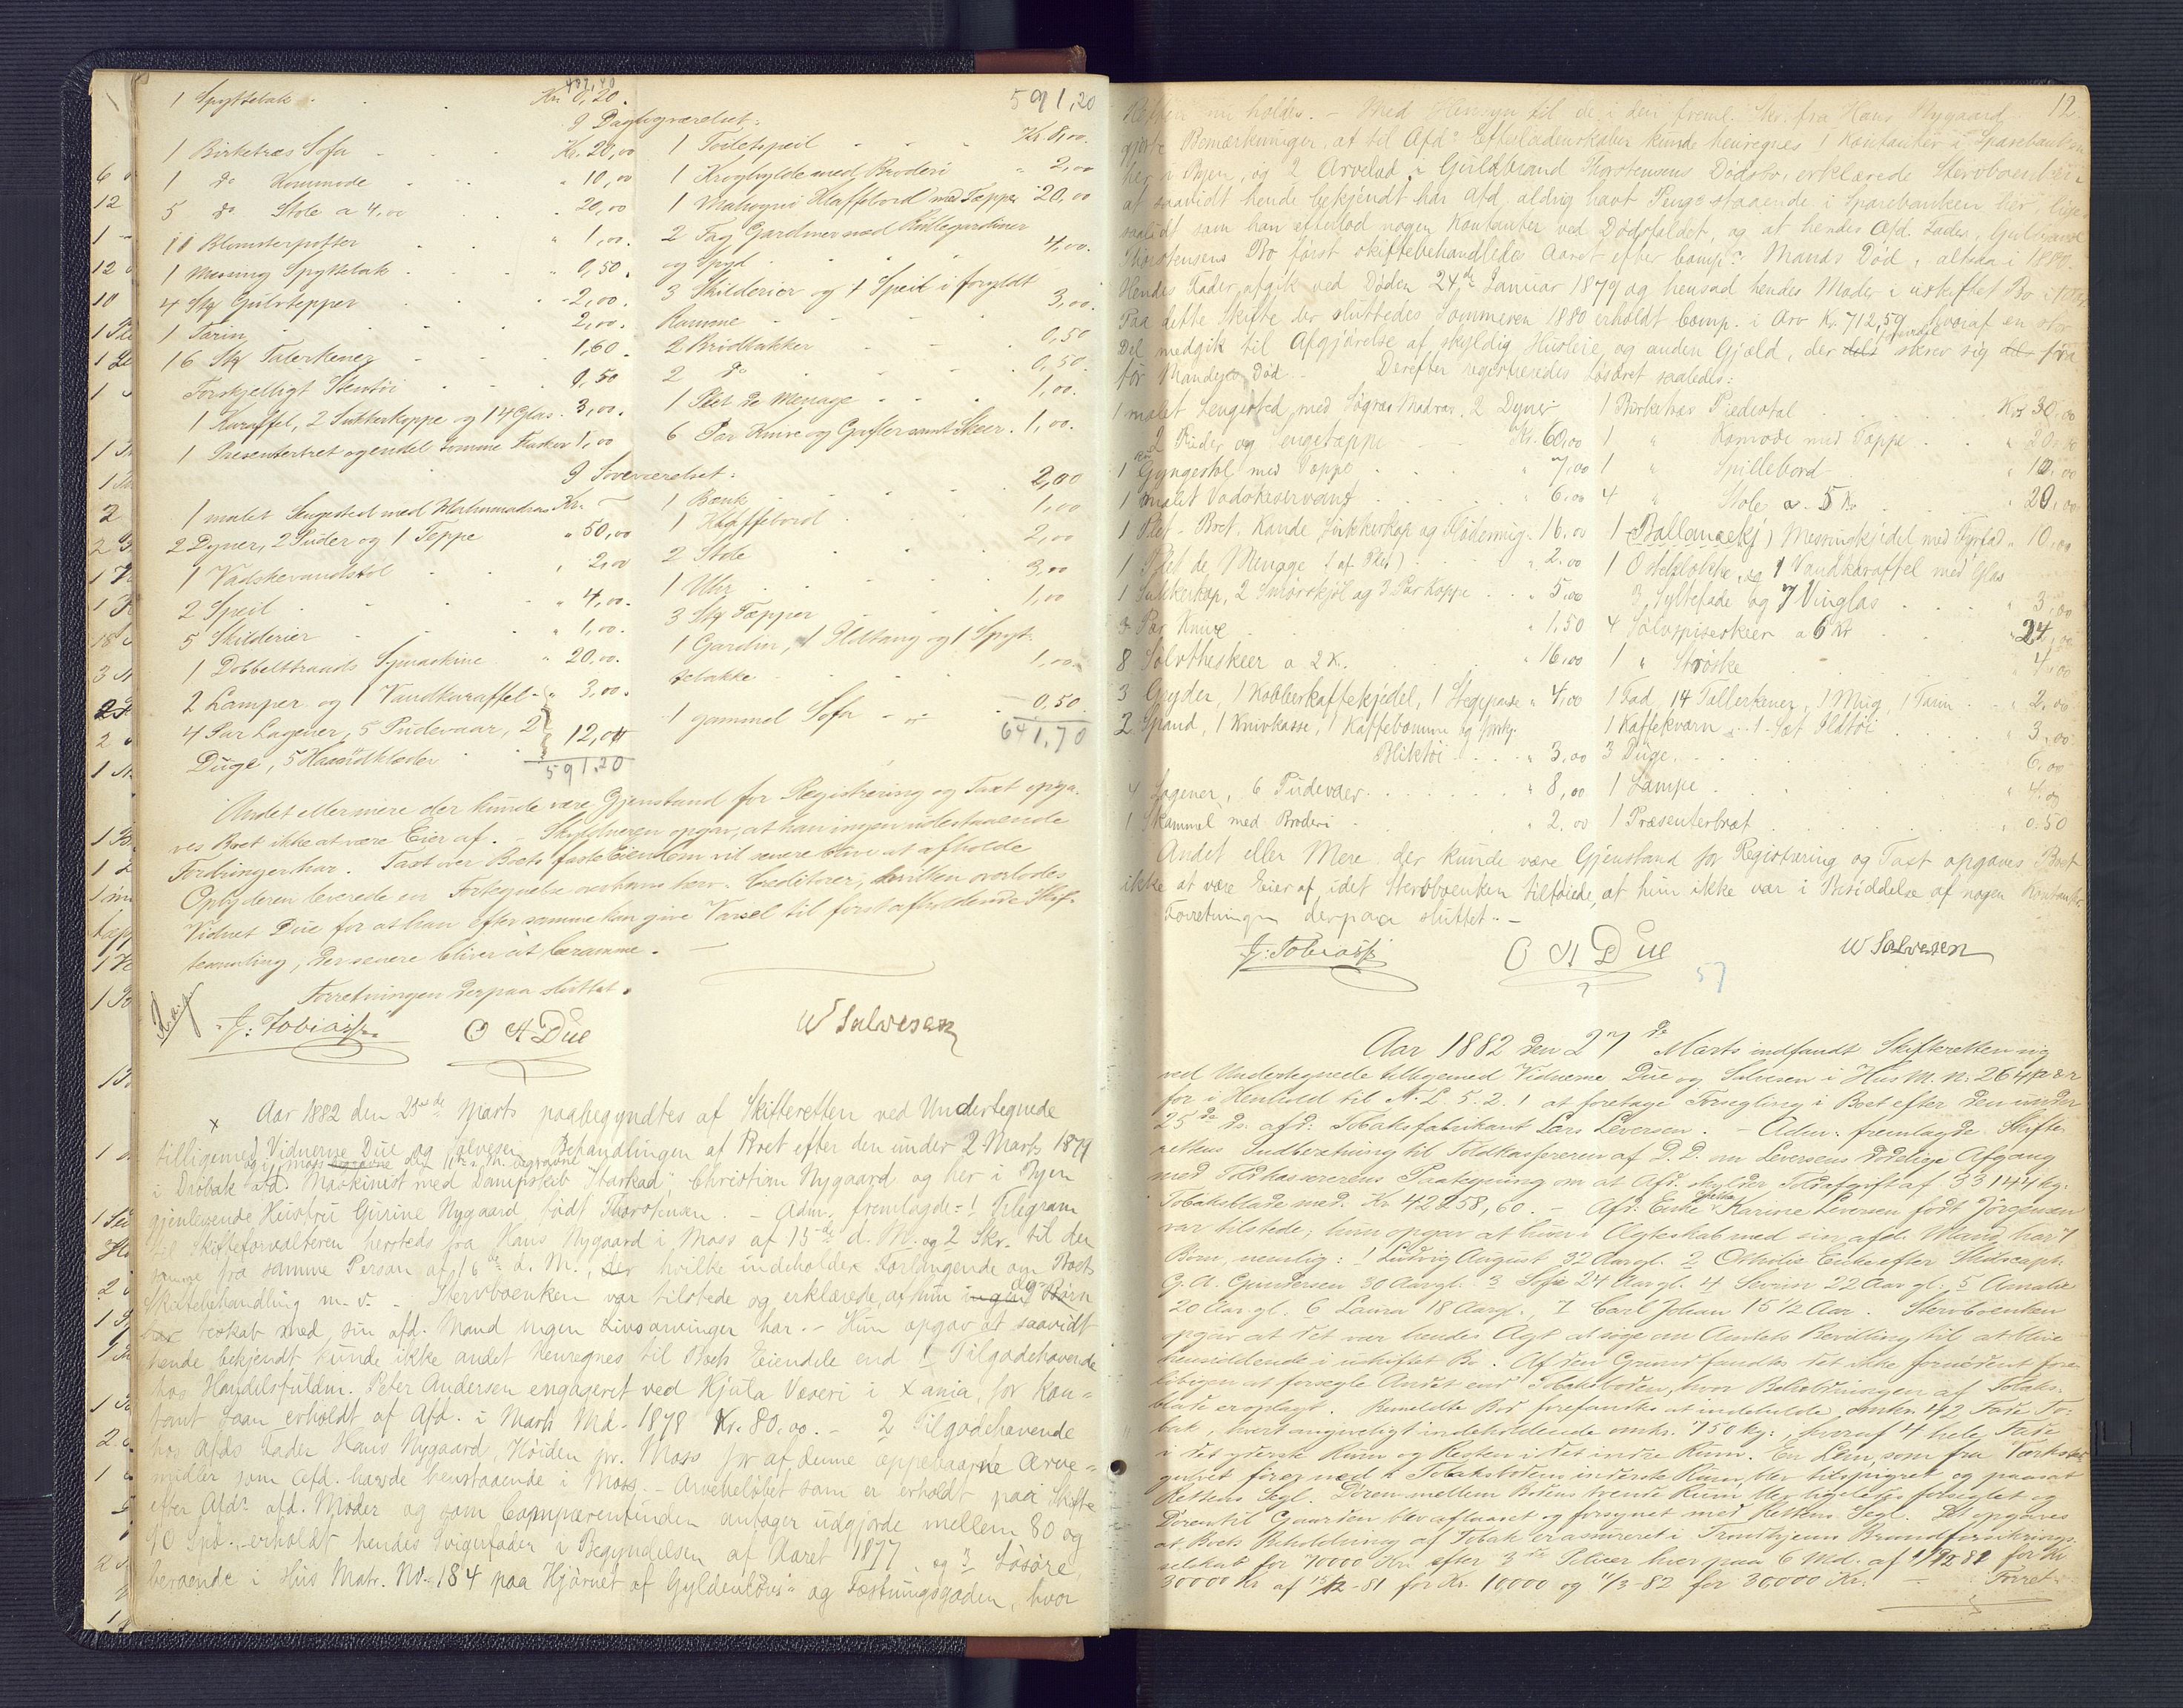 487,40
1 Spyttebak Kr. 0,20.
591,20
I Dagligværelset:
1 Birketræs Sofa Kr. 20,00
1 do Kommode " 10,00
5 do Stole a 4,00 20,00
11 Blomsterpotter " 1,00.
1 Messing Spyttebak 0,50.
4 Stk Gulvtepper 2,00.
1 Tarin 2,00.
16 Stk Talerkener 1,60.
Forskjelligt Stentøi 0,50
1 Karaffel, 2 Sukkerkoppe og 14 Glas. 3,00.
1 Presenterbret og endel tomme Flasker 1,00
1 Toiletspeil Kr. 8,00.
1 Kroghylde med Broderi " 2,00
1 Mahogni Klaffebord med Teppe 20,00
2 Fag Gardiner med Rullegardiner
og Spyd 4,00.
3 Skilderier og 1 Speil i forgyldt
Ramme 3,00.
2 Brødbakker 0,50
2 do 0,50.
1 Plet de Menage 1,00.
6 Par Knive og Gafler samt Skeer. 1,00.
I Soveværelset:
1 malet Sengested med Halmmadras Kr.
2 Dyner, 2 Puder og 1 Teppe " 50,00
1 Vadskevandstol " 2,00
2 Speil " 4,00.
5 Skilderier " 1,00.
1 Dobbelttraads Symaskine " 20,00.
2 Lamper og 1 Vandkaraffel " 3,00.
4 Par Lagener, 5 Pudevaar, 2
Duge, 5 Haandklæder 12,00
591.20
1 Bænk 2,00
1 Klaffebord 1,00
2 Stole 2,00
1 Uhr 3,00
3 Stk Tæpper 1,00
1 Gardin, 1 Ildtang og 1 Spyt-
tebakke 1,00
1 gammel Sofa 0,50.
641,70
Andet eller mere der kunde være Gjenstand for Registrering og Taxt opga-
ves Boet ikke at være Eier af. - Skyldneren opgav, at han ingen udestaaende
Fordringer har. Taxt over Boets faste Eiendom vil senere blive at afholde
Opbyderen leverede en Fortegnelse over hans Creditorer, hvilken overlodes
Vidnet Due for at han efter samme kan give Varsel til først afholdende Skif-
tesamling, der senere bliver at beramme. -
Forretningen derpaa sluttet.
J. Tobiassen O H Due W Salvesen
x Aar 1882 den 25de Marts paabegyndtes af Skifteretten ved Undertegnede
tilligemed Vidnerne Due og Salvesen Behandlingen af Boet efter den under 2 Marts 1879
i Drøbak afd. Maskinist med Dampskib "Starkad" Christian Nygaard og her i Byen
gjenlevende Hustru Gurine Nygaard født Thorstensen. - Adm. fremlagde: 1 Telegram
til Skifteforvalteren hersteds fra Hans Nygaard i Moss af 15de d. M. og 2 Skr. til den
samme fra samme Person af 16de d. M., der hvilke indeholder Forlangende om Boets
Skiftebehandling m. v. - Stervboenken var tilstede og erklærede, at hun
med sin afd. Mand ingen Livsarvinger har. - Hun opgav at saavidt
hende bekjendt kunde ikke andet henregnes til Boets Eiendele end 1 Tilgodehavende
hos Handelsfuldm. Peter Andersen engageret ved Hjula Væveri i Xania, for kon-
tant Laan erholdt af Afd. i Marts Md. 1878 Kr. 80,00. - 2 Tilgodehavende
hos Afds Fader Hans Nygaard, Høiden pr. Moss for af denne oppebaarne Arve-
midler som Afd. havde henstaaende i Moss. - Arvebeløbet som er erholdt paa Skifte
efter Afd. afd. Moder og som Comparentinden antager udgjorde mellem 80 og
90 Spd. erholdt hendes Svigerfader i Begyndelsen af Aaret 1877 og 3 Løsøre,
beroende i Hus Matr. No. 184 paa Hjørnet af Gyldenløvs- og Fæstningsgaden, hvor
12.
Retten nu holdes. - Med Hensyn til de i den freml. Skr. fra Hans Nygaard
gjorte Bemærkninger, at til Afds Efterladenskaber kunde henregnes 1 Kontanter i Sparebanken
her i Byen, og 2 Arvelod i Guldbrand Thorstensens Dødsbo, erklærede Stervboenken
at saavidt hende bekjendt har Afd. aldrig havt Penge staaende i Sparebanken her, lige-
saalidt som han efterlod nogen Kontanter ved Dødsfaldet, og at hendes Afd. Fader, Gulbrand
Thorstensens Bo først skiftebehandledes Aaret efter Comp. Mands Død, altsaa i 1880.
Hendes Fader afgik ved Døden 24de Januar 1879 og hensad hendes Moder i uskiftet Bo
Paa dette Skifte der sluttedes Sommeren 1880 erholdt Comp. i Arv Kr. 712,59 hvoraf en stor
Del medgik til Afgjørelse af skyldig Husleie og anden Gjæld, der skrev sig fra
før Mandens Død - Derefter registreredes Løsøret saaledes:
1 malet Sengested med Søgræs Madras, 2 Dyner
2 Puder og Sengeteppe Kr. 60,00
1 Gyngestol med Teppe " 7,00
1 malet Vadskeservant " 6,00
1 Plet-Bret, Kande, Sukkerkop og Flødemug. 16.00
1 Plet de Menage (af Plet) " 2.00
1 Sukkerkop, 2 Smørskjøl og 3 Par Koppe " 5,00
Par Knive " 1,50
8 Sølvtheskeer a 2 K. " 16,00
3 Gryder, 1 Kobberkaffekjedel, 1 Stegepande " 4,00
2 Spand, 1 Knivkasse, 1 Kaffebomme og forskj.
Bliktøi " 3,00
4 Lagener, 6 Pudevaar " 8,00
1 Skammel med Broderi " 2.00
1 Birketræs Piedestal Kr 30,00
1 " Komode med Teppe " 20,00
1 " Spillebord " 10,00
4 " Stole a 5 Kr " 20,00
1 (Ballancekj) Messingkjedel med Fyrfad " 10,00
1 Osteklokke, og 1 Vandkaraffel med Glas
3 Syltefade og 7 Vinglas " 3,00
4 Sølvspiseskeer a 6 Kr " 24,00
1 " Strøske " 4,00
1 Fad, 14 Tallerkener, 1 Mug, 1 Tarin " 2,00
1 Kaffekværn, 1 Sæt Ildtøi " 3,00
3 Duge 6,00
1 Lampe " 4,00
1 Præsenterbræt " 0.50
Andet eller Mere der kunde være Gjenstand for Registrering og Taxt opgaves Boet
ikke at være Eier af, idet Stervboenken tilføiede, at hun ikke var i Besiddelse af nogen Kontanter
Forretningen derpaa sluttet. -
J. Tobiassen O H Due W Salvesen
57
Aar 1882 den 27de Marts indfandt Skifteretten sig
ved Undertegnede tilligemed Vidnerne Due og Salvesen i Hus M. N: 264 her
for i Henhold til N. L. 5. 2. 1 at foretage Forsegling i Boet efter den under
25de ds. afd: Tobaksfabrikant Lars Leversen. - Adm. fremlagde Skifte-
rettens Indberetning til Toldkassereren af D. D. om Leversens dødelige Afgang
med Toldkassererens Paategning om at Afd. skylder Toldafgift af 33144 kg.
Tobaksblade med Kr 42258,60. - Afd: Enke Karine Leversen født Jørgensen
var tilstede; hun opgav at hun i Ægteskab med sin afd. Mand har 7
Børn, nemlig: 1 Ludvig August 32 Aar gl. 2 Othilie Enke efter Skibscapt.
G. A. Gundersen 30 Aar gl. 3 Sofie 24 Aar gl. 4 Severin 22 Aar gl: 5 Amalie
20 Aar gl. 6 Laura 18 Aar g., 7 Carl Johan 15 1/2 Aar. Stervboenken
opgav at det var hendes Agt at søge om Amtets Bevilling til at blive
hensiddende i uskiftet Bo. Af den Grund fandtes det ikke fornødent fore-
løbigen at forsegle Andet end Tobaksboden, hvor Beholdningen af Tobaks-
blade er oplagt. Bemeldte Bod forefandtes at indeholde omkr. 42 Fade To-
bak, hvert angiveligt indeholdende omkr. 750 kg:, hvoraf 4 hele Fade
i det yderste Rum og Resten i det indre Rum. En Lem, som fra Værksted-
gulvet fører ned i Tobaksbodens inderste Rum, blev tilspigret og paasat
Rettens Segl. Døren mellem Bodens tvende Rum blev ligeledes forseglet og
Døren til Gaarden blev aflaaset og forsynet med Rettens Segl. Det opgaves
at Boets Beholdning af Tobak er assureret i Trondhjems Brandforsikrings-
selskab for 70000 Kr. efter 3 de Policer hver paa 6 Md. af for Kr
30000 Kr af 15/12-81 for Kr. 10,000 og 11/3-82 for 30000 Kr. Forret-